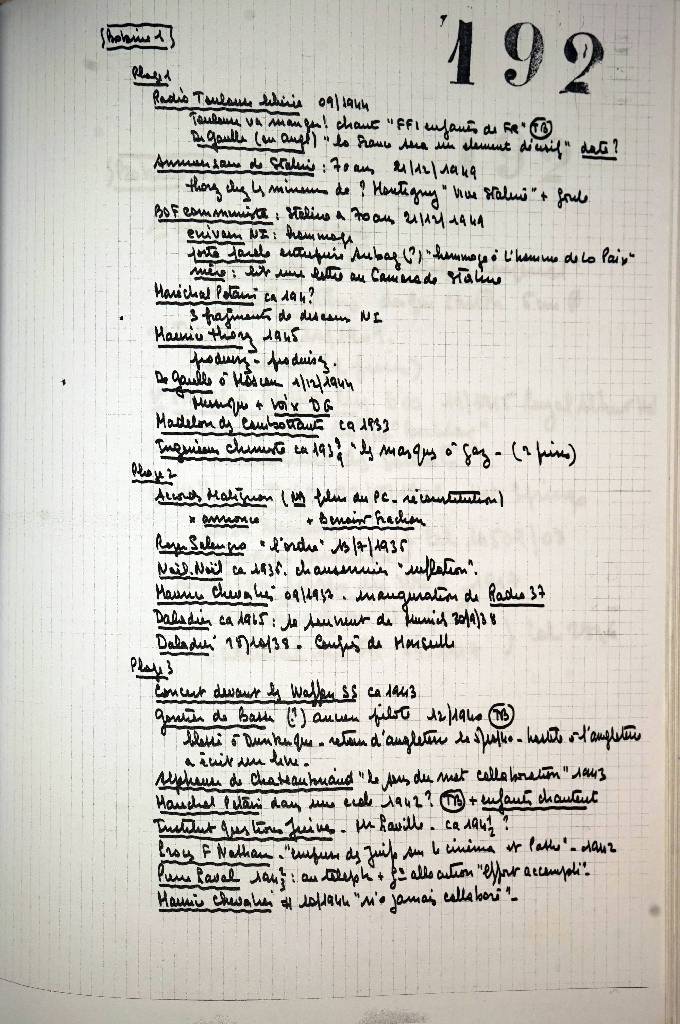 192
Bobine 1
Plage 1
Radio Toulouse libérée 09/1944
Toulouse va manger! chant "FFI enfants de FR" (TB)
De Gaulle (en angl) "la France sera un element décisif" date?
Anniversaire de Staline : 70 ans 21/12/1949
Thorez chez les mineurs de ? Montigny "Vive Staline" + foule
BOF communiste : Staline a 70 ans 21/12/1949
écrivain NI : hommage
porte parole entreprise (?) "hommage à l'homme de la Paix"
mère : lit une lettre au Camarade Staline
Maréchal Pétain ca 194?
3 fragments de discours NI
Maurice Thorez 1945
produisez - produisez.
De Gaulle à Moscou 1/12/1944
Musique + voix DG
Madelon des Combattants ca 1933
Ingénieur chimiste ca 193? 9 "les masques à gaz - (2 fois)
Plage 2
Accords Matignon (NB film du PC - réconstitution)
* annonce + Benoit Frachon
Roger Salengro "l'ordre" 13/7/1936
Noël.Noël ca 1936. chansonnier "inflation".
Maurice Chevalier 09/1937 - inauguration de Radio 37
Daladier ca 1945 : se souvient de Munich 30/9/38
Daladier 28/10/38 - Congrès de Marseille
Plage 3
Concert devant les Waffen SS ca 1943
de (?) ancien pilote 12/1940 (TB)
blessé à Dunkerque - retour d'angleterre le - hostile à l'angleterre
a écrit un livre -
Alphonse de Chateaubriand "le sens du mot collaboration" 1943
Maréchal Pétain dans une école 1942? (TB) + enfants chantent
Institut Questions Juives - Mr Laville - ca 194? ?
F Nathan - "emprise des Juifs sur le cinéma et Pathé" - 1942
Pierre Laval 194 2 3 : au téléph + allocution "effort accompli" -
Maurice Chevalier 10/1944 "n'a jamais collaboré" -